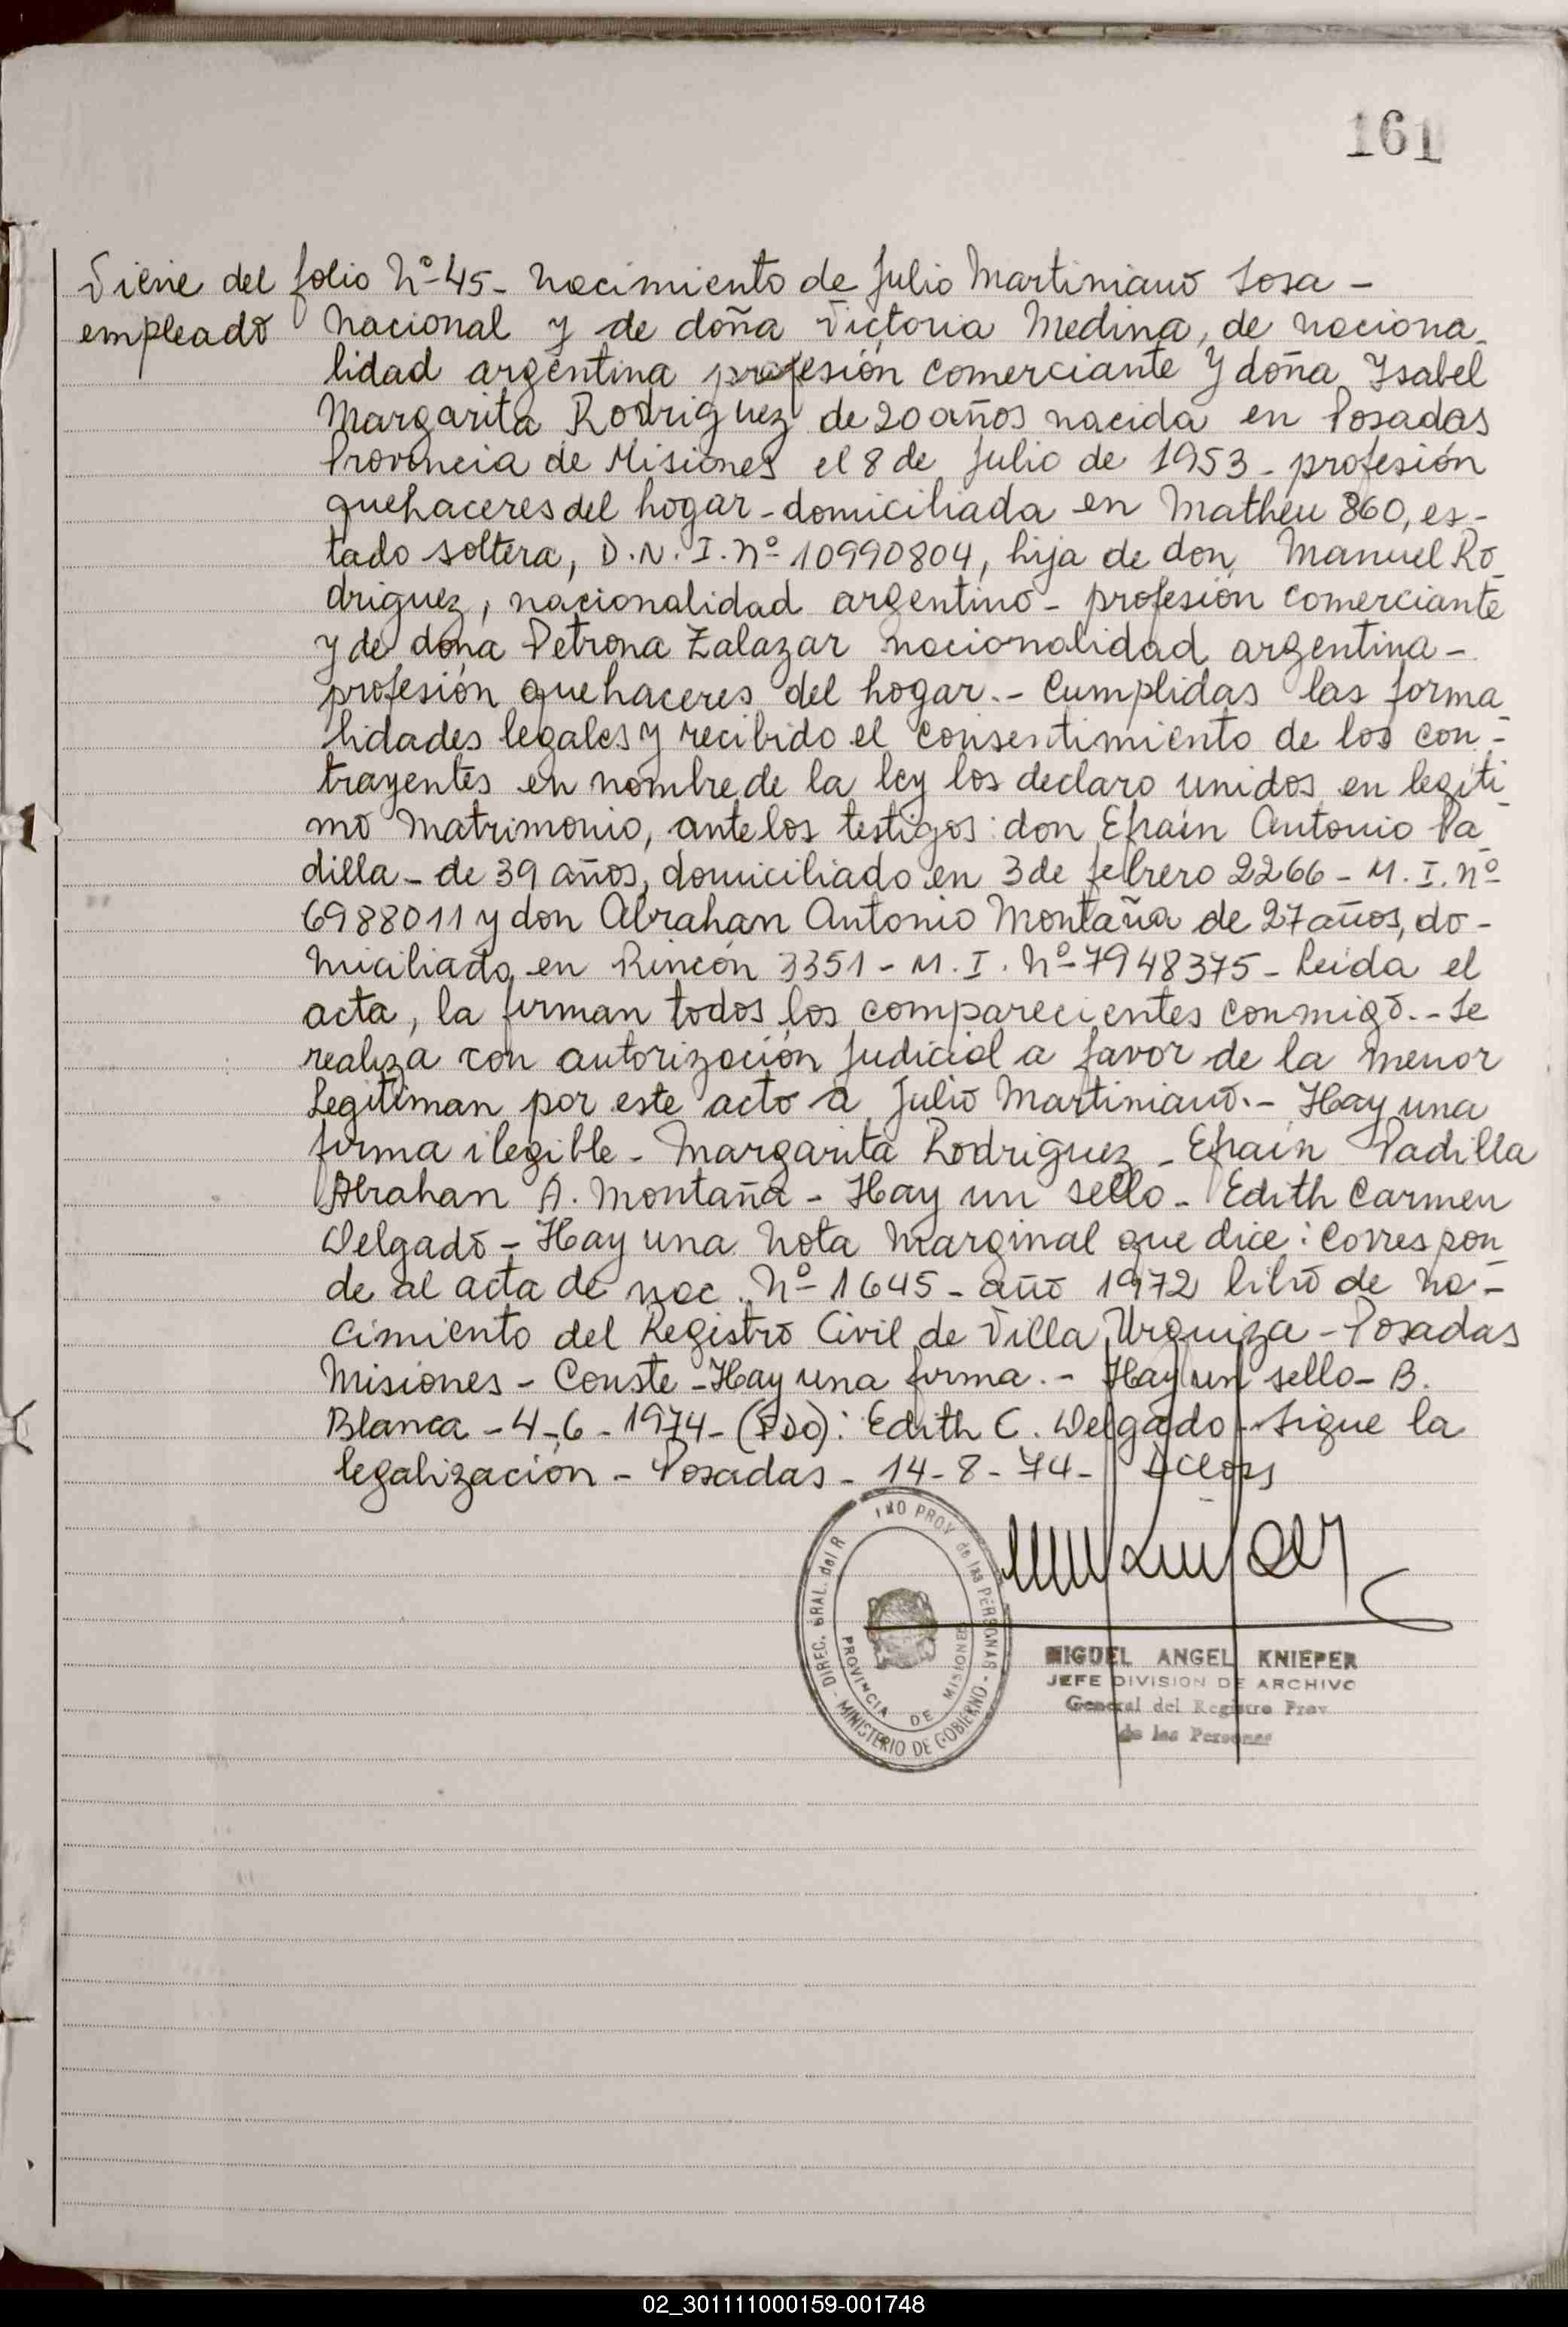 161
Viene del folio Nº 45- Nacimiento de Julio Martiniano Sosa -
empleado Nacional y de doña Victoria Medina, de naciona-
lidad argentina profesión comerciante y doña Ysabel
Margarita Rodriguez de 20 años nacida en Posadas
Provincia de Misiones el 8 de Julio de 1953 - profesión
quehaceres del hogar - domiciliada en Matheu 860, es-
tado soltera, D.N.I. Nº 10990804, hija de don Manuel Ro-
driguez, nacionalidad argentino - profesión comerciante
y de doña Petrona Zalazar nacionalidad argentina -
profesión quehaceres del hogar.- Cumplidas las forma-
lidades legales y recibido el consentimiento de los con-
trayentes en nombre de la ley los declaro unidos en legiti-
mo matrimonio, ante los testigos: don Efraín Antonio Pa-
dilla - de 39 años, domiciliado en 3 de febrero 2266 - M.I. Nº
6988011 y don Abrahan Antonio Montaña de 27 años, do-
miciliado en Rincón 3351 - M.I. Nº 7948375 - Leida el
acta, la firman todos los comparecientes conmigo.- Se
realiza con autorización Judicial a favor de la menor
Legitiman por este acto a Julio Martiniano.- Hay una
firma ilegible - Margarita Rodriguez - Efraín Padilla
Abrahan A. Montaña - Hay un sello - Edith Carmen
Delgado - Hay una Nota Marginal que dice: Correspon-
de al acta de nac. Nº 1645 - año 1972 libro de Na-
cimiento del Registro Civil de Villa Urquiza - Posadas
Misiones - Conste - Hay una firma.- Hay un sello - B.
Blanca - 4-6-1974 - (FDO): Edith C. Delgado - Sigue la
legalización - Posadas - 14-8-74 -
DIREC. GRAL. del R INO PROV. de las PERSONAS - MINISTERIO DE GOBIERNO -
PROVINCIA DE MISIONES
MIGUEL ANGEL KNIEPER
JEFE DIVISION DE ARCHIVO
General del Registro Prov
de las Personas
02_301111000159-001748